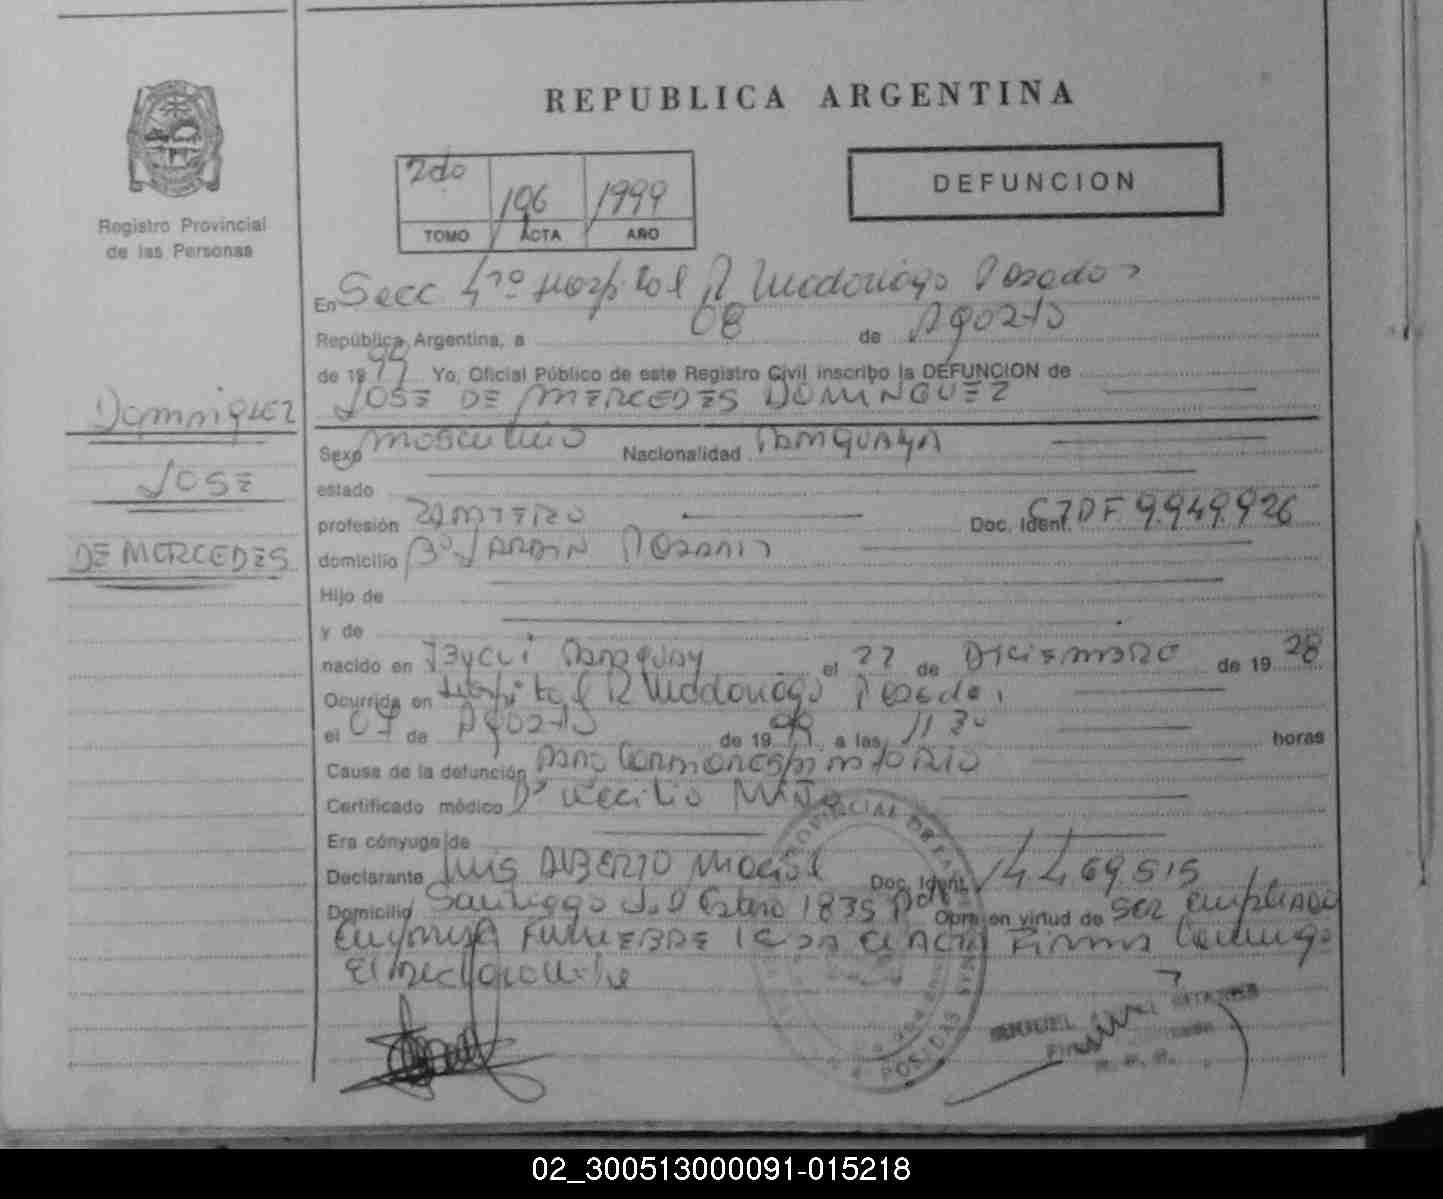 REPUBLICA ARGENTINA
Registro Provincial
de las Personas
2do 106 1999
TOMO ACTA AÑO
DEFUNCION
En Secc 4ta Hospital R Madariaga Posadas
República Argentina, a 08 de Agosto
de 1999 Yo, Oficial Público de este Registro Civil inscribo la DEFUNCION de
JOSE DE MERCEDES DOMINGUEZ
Dominguez
JOSE
DE MERCEDES
Sexo masculino Nacionalidad Paraguaya
estado
profesión Doc. Ident. 9.949.926
domicilio Bº JARDIN Posadas
Hijo de
y de
nacido en Paraguay el 22 de Diciembre de 1928
Ocurrida en Hospital R Madariaga Posadas
el 07 de Agosto de 1999 a las 11 30 horas
Cause de la defunción Paro Cardiorespiratorio
Certificado médico Dr
Era cónyuge de
Declarante Luis ALBERTO Doc. Ident. 14469515
Domicilio Santiago del Estero 1835 Pdas Obra en virtud de ser empleado
FUNEBRE ACTA Firma Conmigo
El declarante
PROVINCIAL DE LAS
POSADAS
02_300513000091-015218